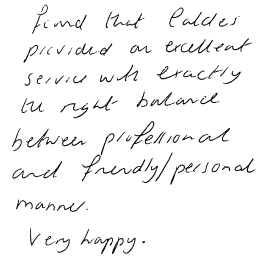 find that Caldes
provided an excellent
service with exactly
the right balance
between professional
and friendly/personal
manner.
Very happy.